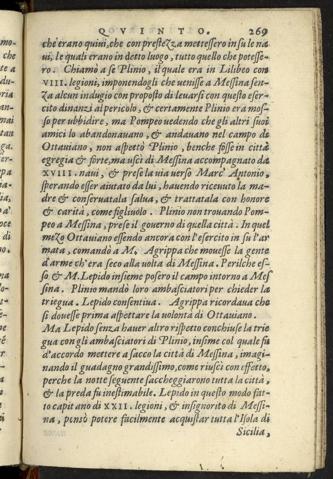 QVINTO. 269
che erano quiui, che con prestezza mettessero in su le na
ui, le quali erano in detto luogo, tutto quello che potesse-
ro. Chiamò a se Plinio, il quale era in Lilibeo con
VIII. legioni, imponendogli che uenisse a Messina sen-
za alcun indugio con proposito di leuarsi con questo eser-
cito dinanzi al pericolo, & certamente Plinio era mos-
so per ubbidire, ma Pompeo uedendo che gli altri suoi
amici lo abandonauano, & andauano nel campo di
Ottauiano, non aspettò Plinio, benche fosse in città
egregia & forte, ma uscì di Messina accompagnato da
XVIII. naui, & prese la via uerso Marc' Antonio,
sperando esser aiutato da lui, hauendo riceuuto la ma-
dre & conseruatala salua, & trattatala con honore
& carità, come figliuolo. Plinio non trouando Pom-
peo a Messina, prese il gouerno di quella città. In quel
mezo Ottauiano essendo ancora con l'esercito in su l'ar
mata, comandò a M. Agrippa che mouesse la gente
d'arme ch'era seco alla volta di Messina. Perilche es-
so & M. Lepido insieme posero il campo intorno a Mes
sina. Plinio mandò loro ambasciatori per chieder la
triegua. Lepido consentiua. Agrippa ricordaua che
si douesse prima aspettare la volontà di Ottauiano.
Ma Lepido senza hauer altro rispetto conchiuse la trie
gua con gli ambasciatori di Plinio, insime col quale fu
d'accordo mettere a sacco la città di Messina, imagi-
nando il guadagno grandissimo, come riuscì con effetto,
perche la notte seguente saccheggiarono tutta la città,
& la preda fu inestimabile. Lepido in questo modo fat-
to capitano di XXII. legioni, & insignorito di Messi-
na, pensò potere facilmente acquistar tutta l'Isola di
Sicilia,